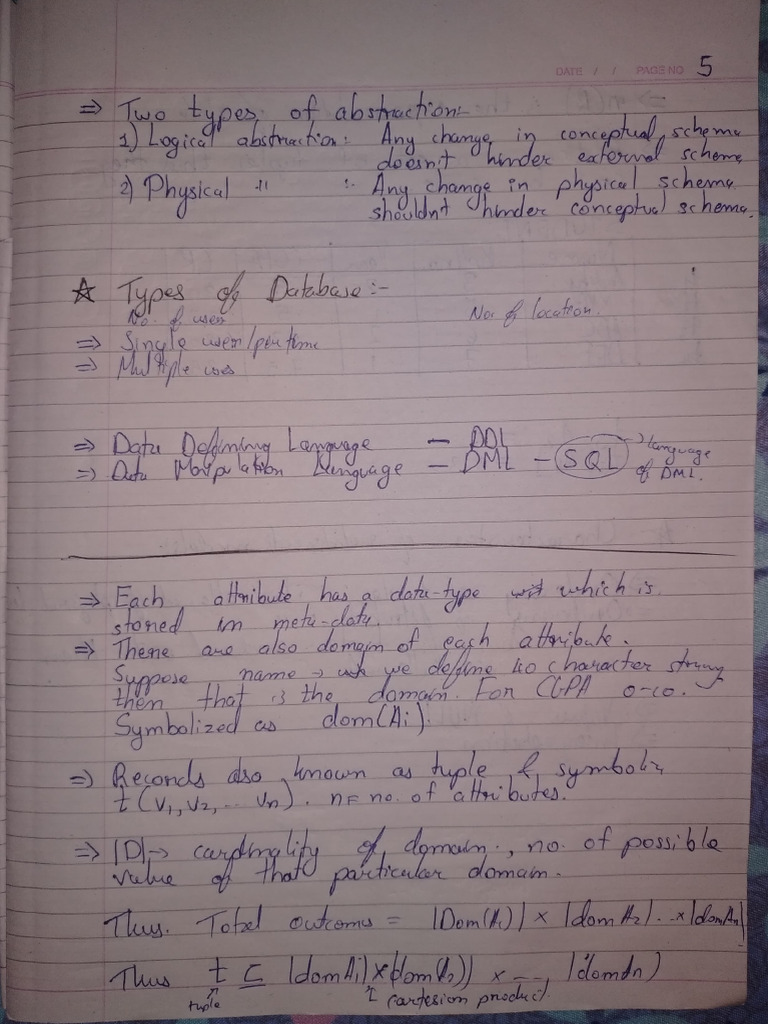 DATE / / PAGE NO 5
⇒ Two types of abstraction:-
1) Logical abstraction: Any change in conceptual schema
doesn't hinder external schema
2) Physical " :- Any change in physical schema
shouldn't hinder conceptual schema.
☆ Types of Database:-
No. of user No. of location.
⇒ Single user/per time
⇒ Multiple
⇒ Data Defining Language — DDL
⇒ Data Language — DML — SQL → language
of DML.
⇒ Each attribute has a data-type which is
stored in meta-data.
⇒ There are also domain of each attribute.
Suppose name → we define 40 character string
then that is the domain. For CGPA 0-10.
Symbolized as dom(Ai)
⇒ Records also known as tuple &
t (v1, v2, ... vn). n = no. of attributes.
⇒ |D| → cardinality of domain, no. of possible
value of that particular domain.
Thus. Total outcomes = |Dom(A1)| × |dom A2| .. × |dom An|
Thus t ⊆ |dom Ai| × |dom(A2)| × --- |dom An)
tuple ↑ cartesion product.